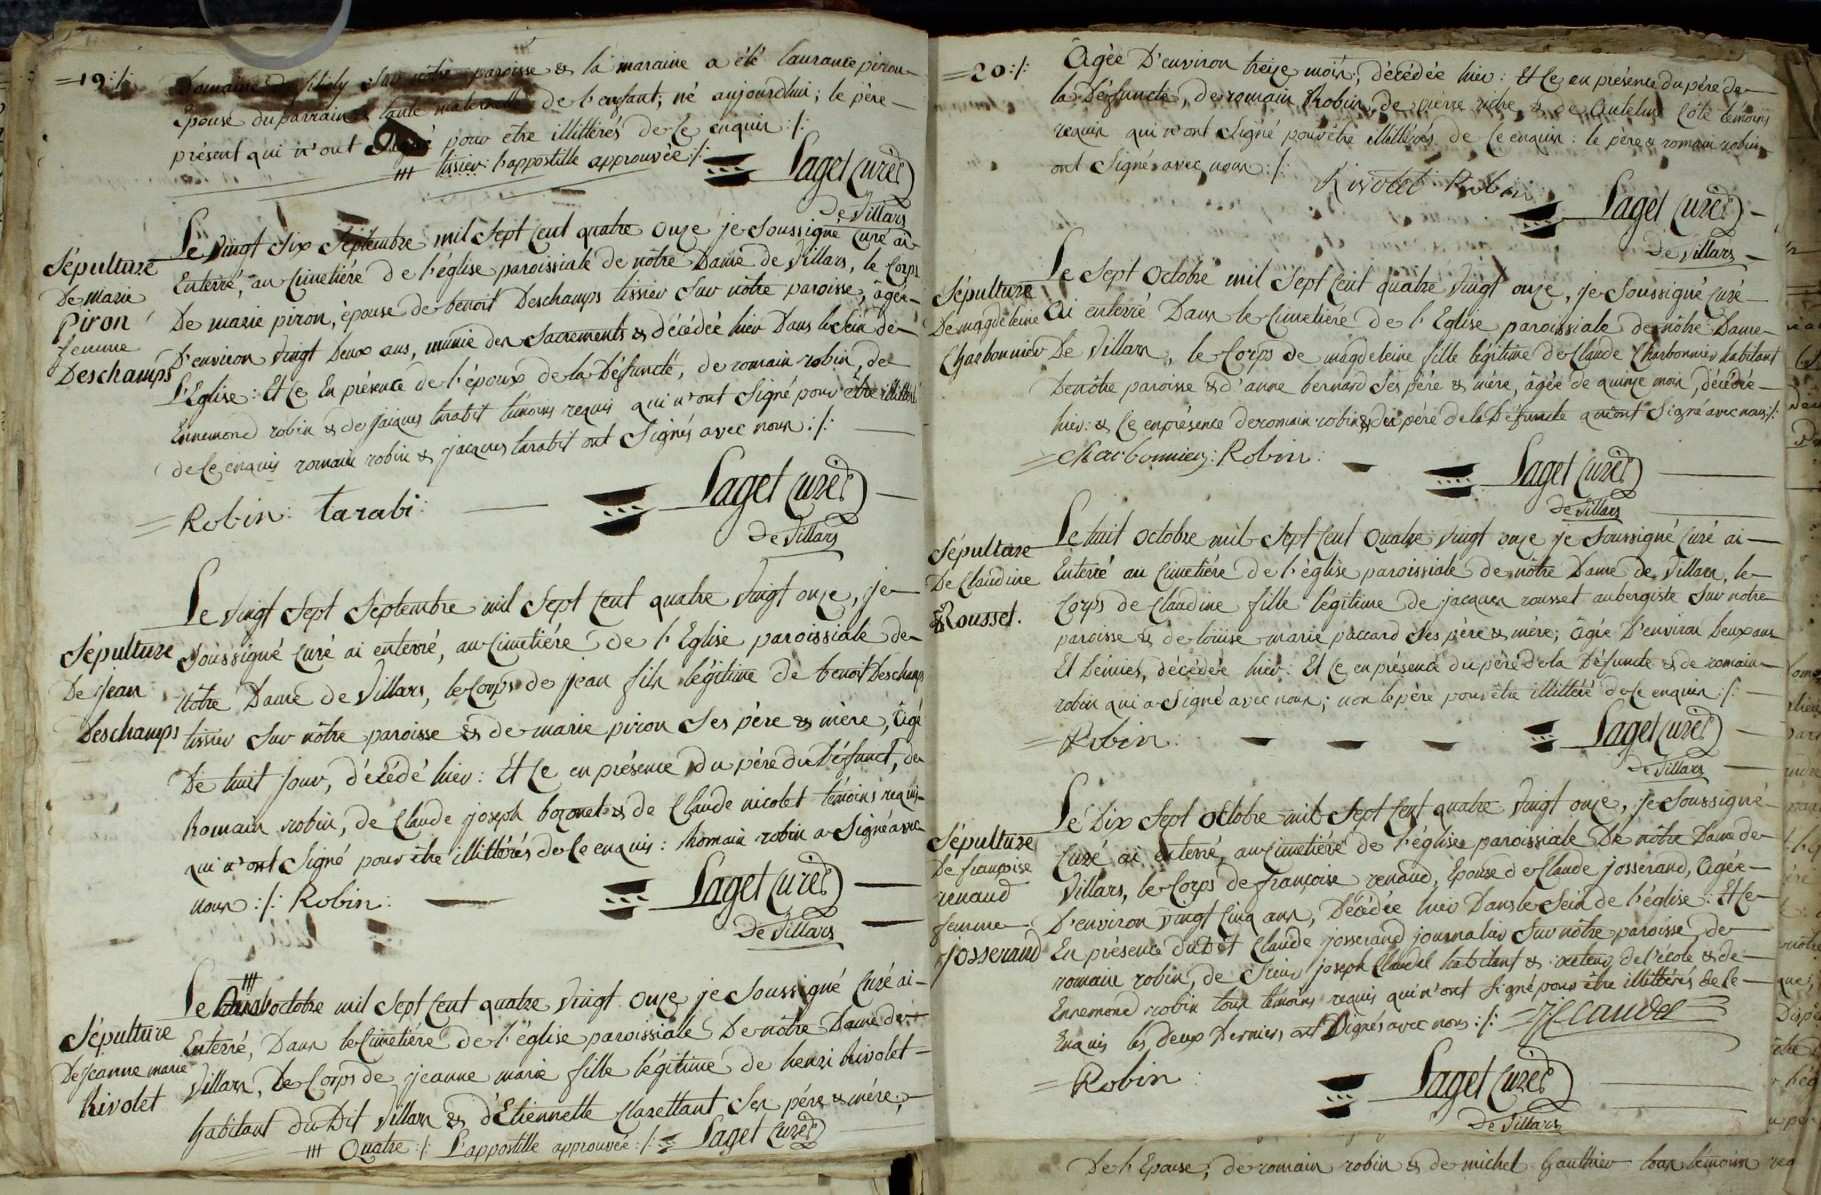 =19:/:
Domaine de filioly sur nôtre paroisse & la maraine a été laurance piron
Epouse du parrain & tante maternelle de l'enfant, né aujourdhui; le père
présent qui n'ont Signé pour etre illittérés de Ce enquis :/:
tissier l'appostille approuvée :/: Laget Curé
De Villars
Sépulture
De marie
Piron
femme
Deschamps
Le vingt Six Septembre mil Sept Cent quatre onze je Soussigné Curé ai
Enterré, au Cimetiére de l'église paroissiale de nôtre Dame de Villars, le Corps
De marie piron, épouse de benoit Deschamps tissier Sur nôtre paroisse, âgée
D'environ vingt Deux ans, munie des Sacrements & décédée hier Dans le Sein de
L'Eglise: Et Ce En présence de l'époux de la Défuncte, de romain robin, de
Ennemond robin & de jacques tarabit témoins requis qui n'ont Signé pour être illittérés
de Ce enquis romain robin & jacques tarabit ont Signés avec nous :/:
= Robin: tarabi: Laget Curé
De Villars
Sépulture
De Jean
Deschamps
Le vingt Sept Septembre mil Sept Cent quatre Vingt onze, je
Soussigné Curé ai enterré, au Cimetiére de l'Eglise paroissiale de
Nôtre Dame de Villars, le Corps de jean fils légitime de benoit Deschamps
tissier Sur nôtre paroisse & de marie piron Ses père & mère, âgé
De huit jour, décédé hier: Et Ce en présence du père du Défunct, de
Romain robin, de Claude joseph boronet & de Claude nicolet témoins requis
qui n'ont Signé pour être illittérés de Ce enquis: Romain robin a Signé avec
nous :/: Robin: Laget Curé
De Villars
Sépulture
De Jeanne marie
Rivolet
Le octobre mil Sept Cent quatre Vingt onze je Soussigné Curé ai
Enterré, Dans le Cimetiére de l'église paroissiale De nôtre Dame de
Villars, Le Corps de jeanne marie fille légitime de henri Rivolet
habitant du Dit Villars & d'Etiennette Clarettant Ses père & mère,
Quatre :/: L'appostille approuvée :/: Laget Curé
=20:/:
Agée D'environ treize mois, décédée hier: Et Ce en présence du père de
la Défuncte, de romain Robin, de pierre riche & de Côte témoins
requis qui n'ont Signé pour être illittérés de Ce enquis: le père & romain robin
ont Signés avec nous :/:
Rivolet Robin
Laget Curé
De Villars
Sépulture
De magdeleine
Charbonnier
Le Sept Octobre mil Sept Cent quatre Vingt onze, je Soussigné Curé
Ai enterré Dans le Cimetiére de l'Eglise paroissiale de nôtre Dame
De Villars, le Corps de magdeleine fille légitime de Claude Charbonnier habitant
De nôtre paroisse & d'anne bernard Ses père & mère, âgée de quinze mois, décédée
hier: & Ce en présence de romain robin & du père de la Défuncte qui ont Signé avec nous :/:
= Charbonnier: Robin: Laget Curé
De Villars
Sépulture
De Claudine
Rousset.
Le huit octobre mil Sept Cent Quatre Vingt onze je Soussigné Curé ai
Enterré au Cimetiére de l'église paroissiale de nôtre Dame de Villars, le
Corps de Claudine fille légitime de jacques rousset aubergiste Sur notre
paroisse & de louise marie paccard Ses père & mère; âgée D'environ Deux ans
Et Demies, décédée hier: Et Ce en présence du père de la Défuncte & de romain
robin qui a Signé avec nous; non le père pour être illittéré de Ce enquis :/:
= Robin: Laget Curé
De Villars
Sépulture
De françoise
renaud
femme
Josserand
Le Dix Sept Octobre mil Sept Cent quatre Vingt onze, je Soussigné
Curé ai enterré, au Cimetiére de l'église paroissiale De nôtre Dame de
Villars, le Corps de françoise renaud, Epouse de Claude josserand, âgée
D'environ vingt Cinq ans, Décédée hier Dans le Sein de l'église: Et Ce
En présence du Dit Claude josserand journalier Sur nôtre paroisse, de
romain robin, de Sieur joseph Claudel habitant & recteur de l'école & de
Ennemond robin tous témoins requis qui n'ont Signé pour être illittérés de Ce
Enquis les Deux Derniers ont Signés avec nous :/: = J: Claudel
= Robin: Laget Curé
De Villars
De l'Epouse, de romain robin & de michel Gauthier tous témoins req